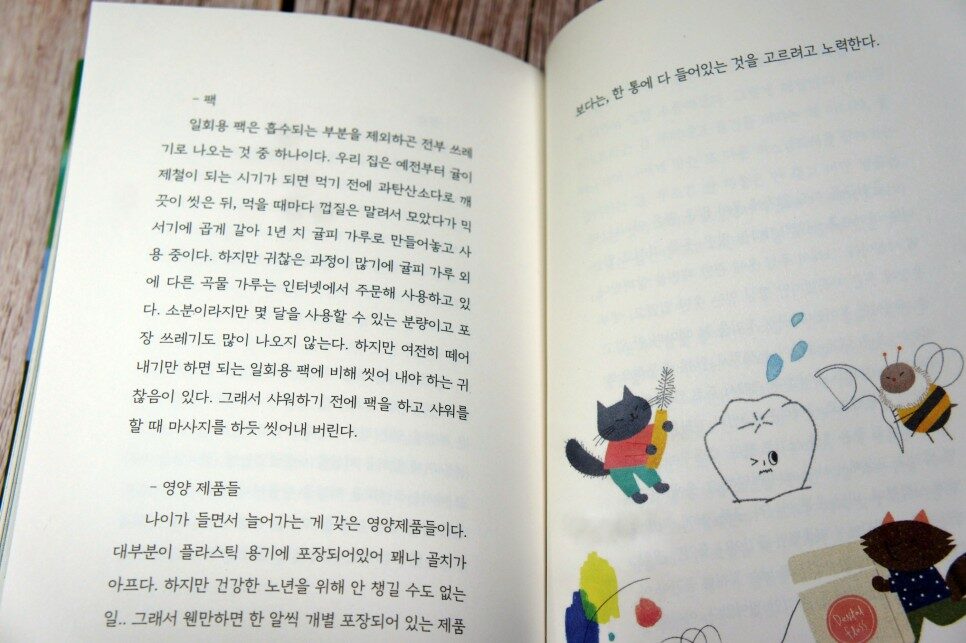 - 팩
일회용 팩은 흡수되는 부분을 제외하곤 전부 쓰레
기로 나오는 것 중 하나이다. 우리 집은 예전부터 귤이
제철이 되는 시기가 되면 먹기 전에 과탄산소다로 깨
끗이 씻은 뒤, 먹을 때마다 껍질은 말려서 모았다가 믹
서기에 곱게 갈아 1년 치 귤피 가루로 만들어놓고 사
용 중이다. 하지만 귀찮은 과정이 많기에 귤피 가루 외
에 다른 곡물 가루는 인터넷에서 주문해 사용하고 있
다. 소분이라지만 몇 달을 사용할 수 있는 분량이고 포
장 쓰레기도 많이 나오지 않는다. 하지만 여전히 떼어
내기만 하면 되는 일회용 팩에 비해 씻어 내야 하는 귀
찮음이 있다. 그래서 샤워하기 전에 팩을 하고 샤워를
할 때 마사지를 하듯 씻어내 버린다.
- 영양 제품들
나이가 들면서 늘어가는 게 갖은 영양제품들이다.
대부분이 플라스틱 용기에 포장되어있어 꽤나 골치가
아프다. 하지만 건강한 노년을 위해 안 챙길 수도 없는
일.. 그래서 웬만하면 한 알씩 개별 포장되어 있는 제품
보다는, 한 통에 다 들어있는 것을 고르려고 노력한다.
Dental
floss